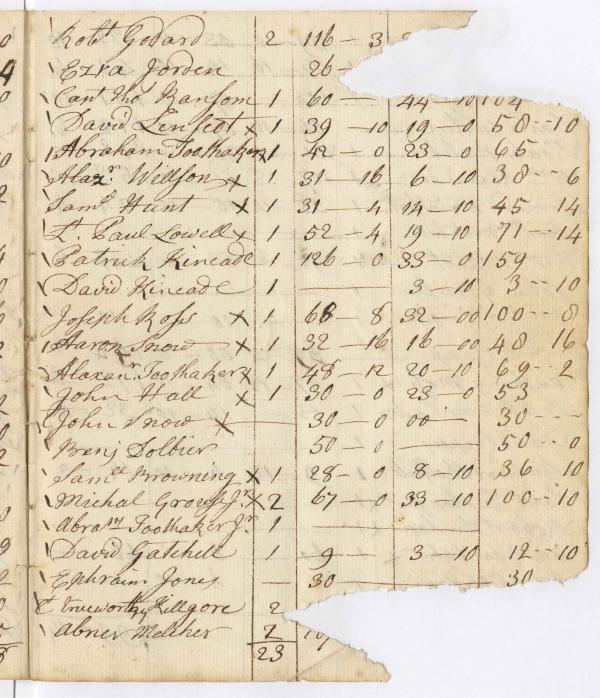 Robt Godard 2 116 - 3
Ezra Jorden 26 -
Capt Tho Ransom 1 60 - 44 - 10 104
David Lenfect x 1 39 - 10 19 - 0 58 -- 10
Abraham Toothaker x 1 42 - 0 23 - 0 65
Alaxr. Willson x 1 31 - 16 6 - 10 38 -- 6
Samel Hunt x 1 31 - 4 14 - 10 45 14
Lt Paul Lowell x 1 52 - 4 19 - 10 71 -- 14
Patrick Kincade 1 126 - 0 33 - 0 159
David Kincade 1 — 3 - 10 3 -- 10
Joseph Ross x 1 68 - 8 32 - 00 100 -- 8
Aaron Snow x 1 32 - 16 16 - 00 48 16
Alaxanr. Toothaker x 1 48 - 12 20 - 10 69 -- 2
John Hall x 1 30 - 0 23 - 0 53
John Snow x — 30 - 0 00 30 ---
Benj Dolbier 50 - 0 — 50 -- 0
Samel Browning x 1 28 - 0 8 - 10 36 10
Michal Grows Jr. x 2 67 - 0 33 - 10 100 -- 10
Abram Toothaker Jr. 1 —
David Gatchell 1 9 — 3 - 10 12 -- 10
Ephraim Jones — 30 — 30
Trueworthy Killgore 2
Abner Melcher 2
23